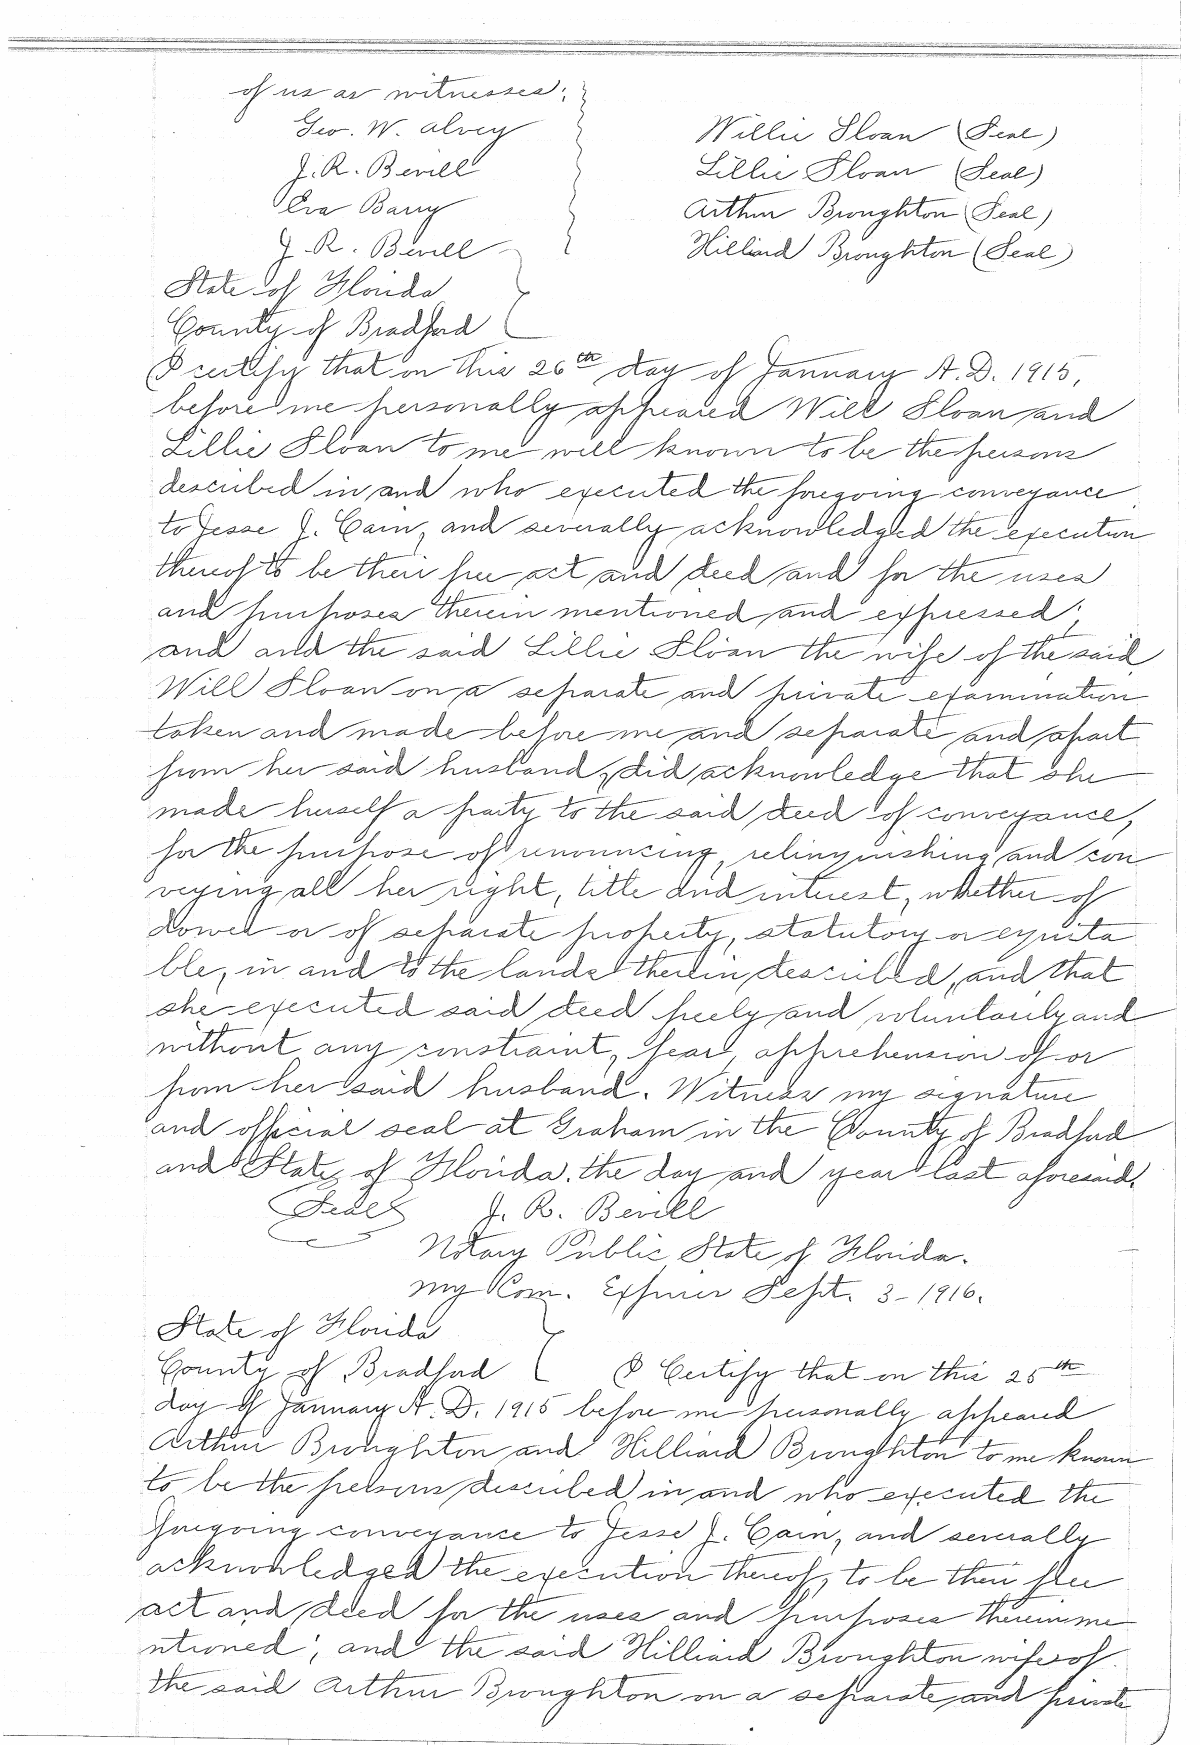 of us as witnesses;
Geo. W. Alvey
J. R. Bevill
Eva Barry
J. R. Bevill
Willie Sloan (Seal)
Lillie Sloan (Seal)
Arthur Broughton (Seal)
Hilliard Broughton (Seal)
State of Florida
County of Bradford
I certify that on this 26th day of January A.D. 1915,
before me personally appeared Will Sloan and
Lillie Sloan to me well known to be the persons
described in and who executed the foregoing conveyance
to Jesse J. Cain, and severally acknowledged the execution
thereof to be their free act and deed and for the uses
and purposes therein mentioned and expressed;
and and the said Lillie Sloan the wife of the said
Will Sloan on a separate and private examination
taken and made before me and separate and apart
from her said husband, did acknowledge that she
made herself a party to the said deed of conveyance,
for the purpose of renouncing, relinquishing and con
veying all her right, title and interest, whether of
dower or of separate property, statutory or equita
ble, in and to the lands therein described, and that
she executed said deed freely and voluntarily and
without any constraint, fear, apprehension of or
from her said husband. Witness my signature
and official seal at Graham in the County of Bradford
and State of Florida. the day and year last aforesaid.
Seal J. R. Bevill
Notary Public State of Florida.
My Com. Expires Sept. 3-1916.
State of Florida
County of Bradford I Certify that on this 25th
day of January A. D. 1915 before me personally appeared
Arthur Broughton and Hilliard Broughton to me known
to be the persons described in and who executed the
foregoing conveyance to Jesse J. Cain, and severally
acknowledged the execution thereof, to be their free
act and deed for the uses and purposes therein me
ntioned; and the said Hilliard Broughton wife of
the said Arthur Broughton on a separate and private